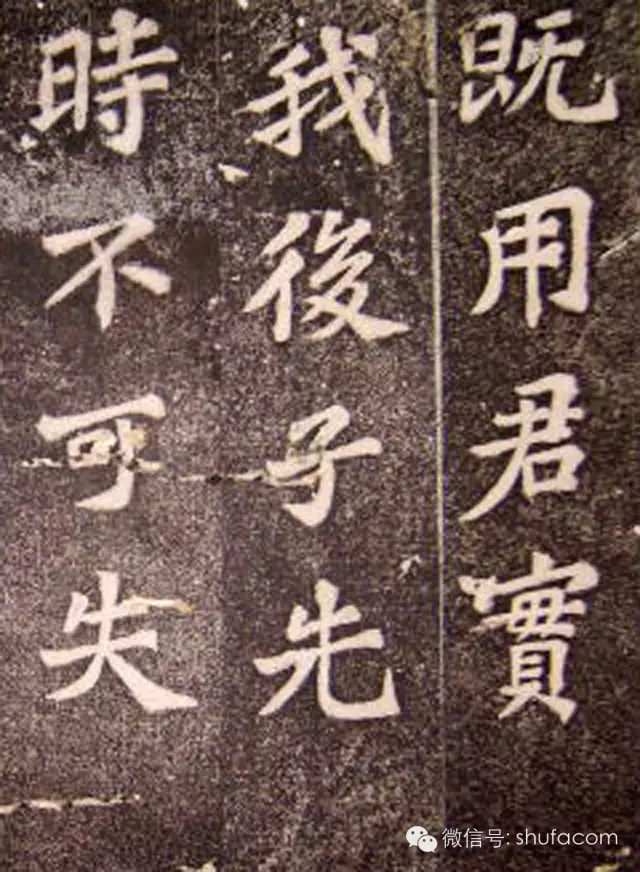 既用君實
我後子先
時不可失
微信号: shufacom